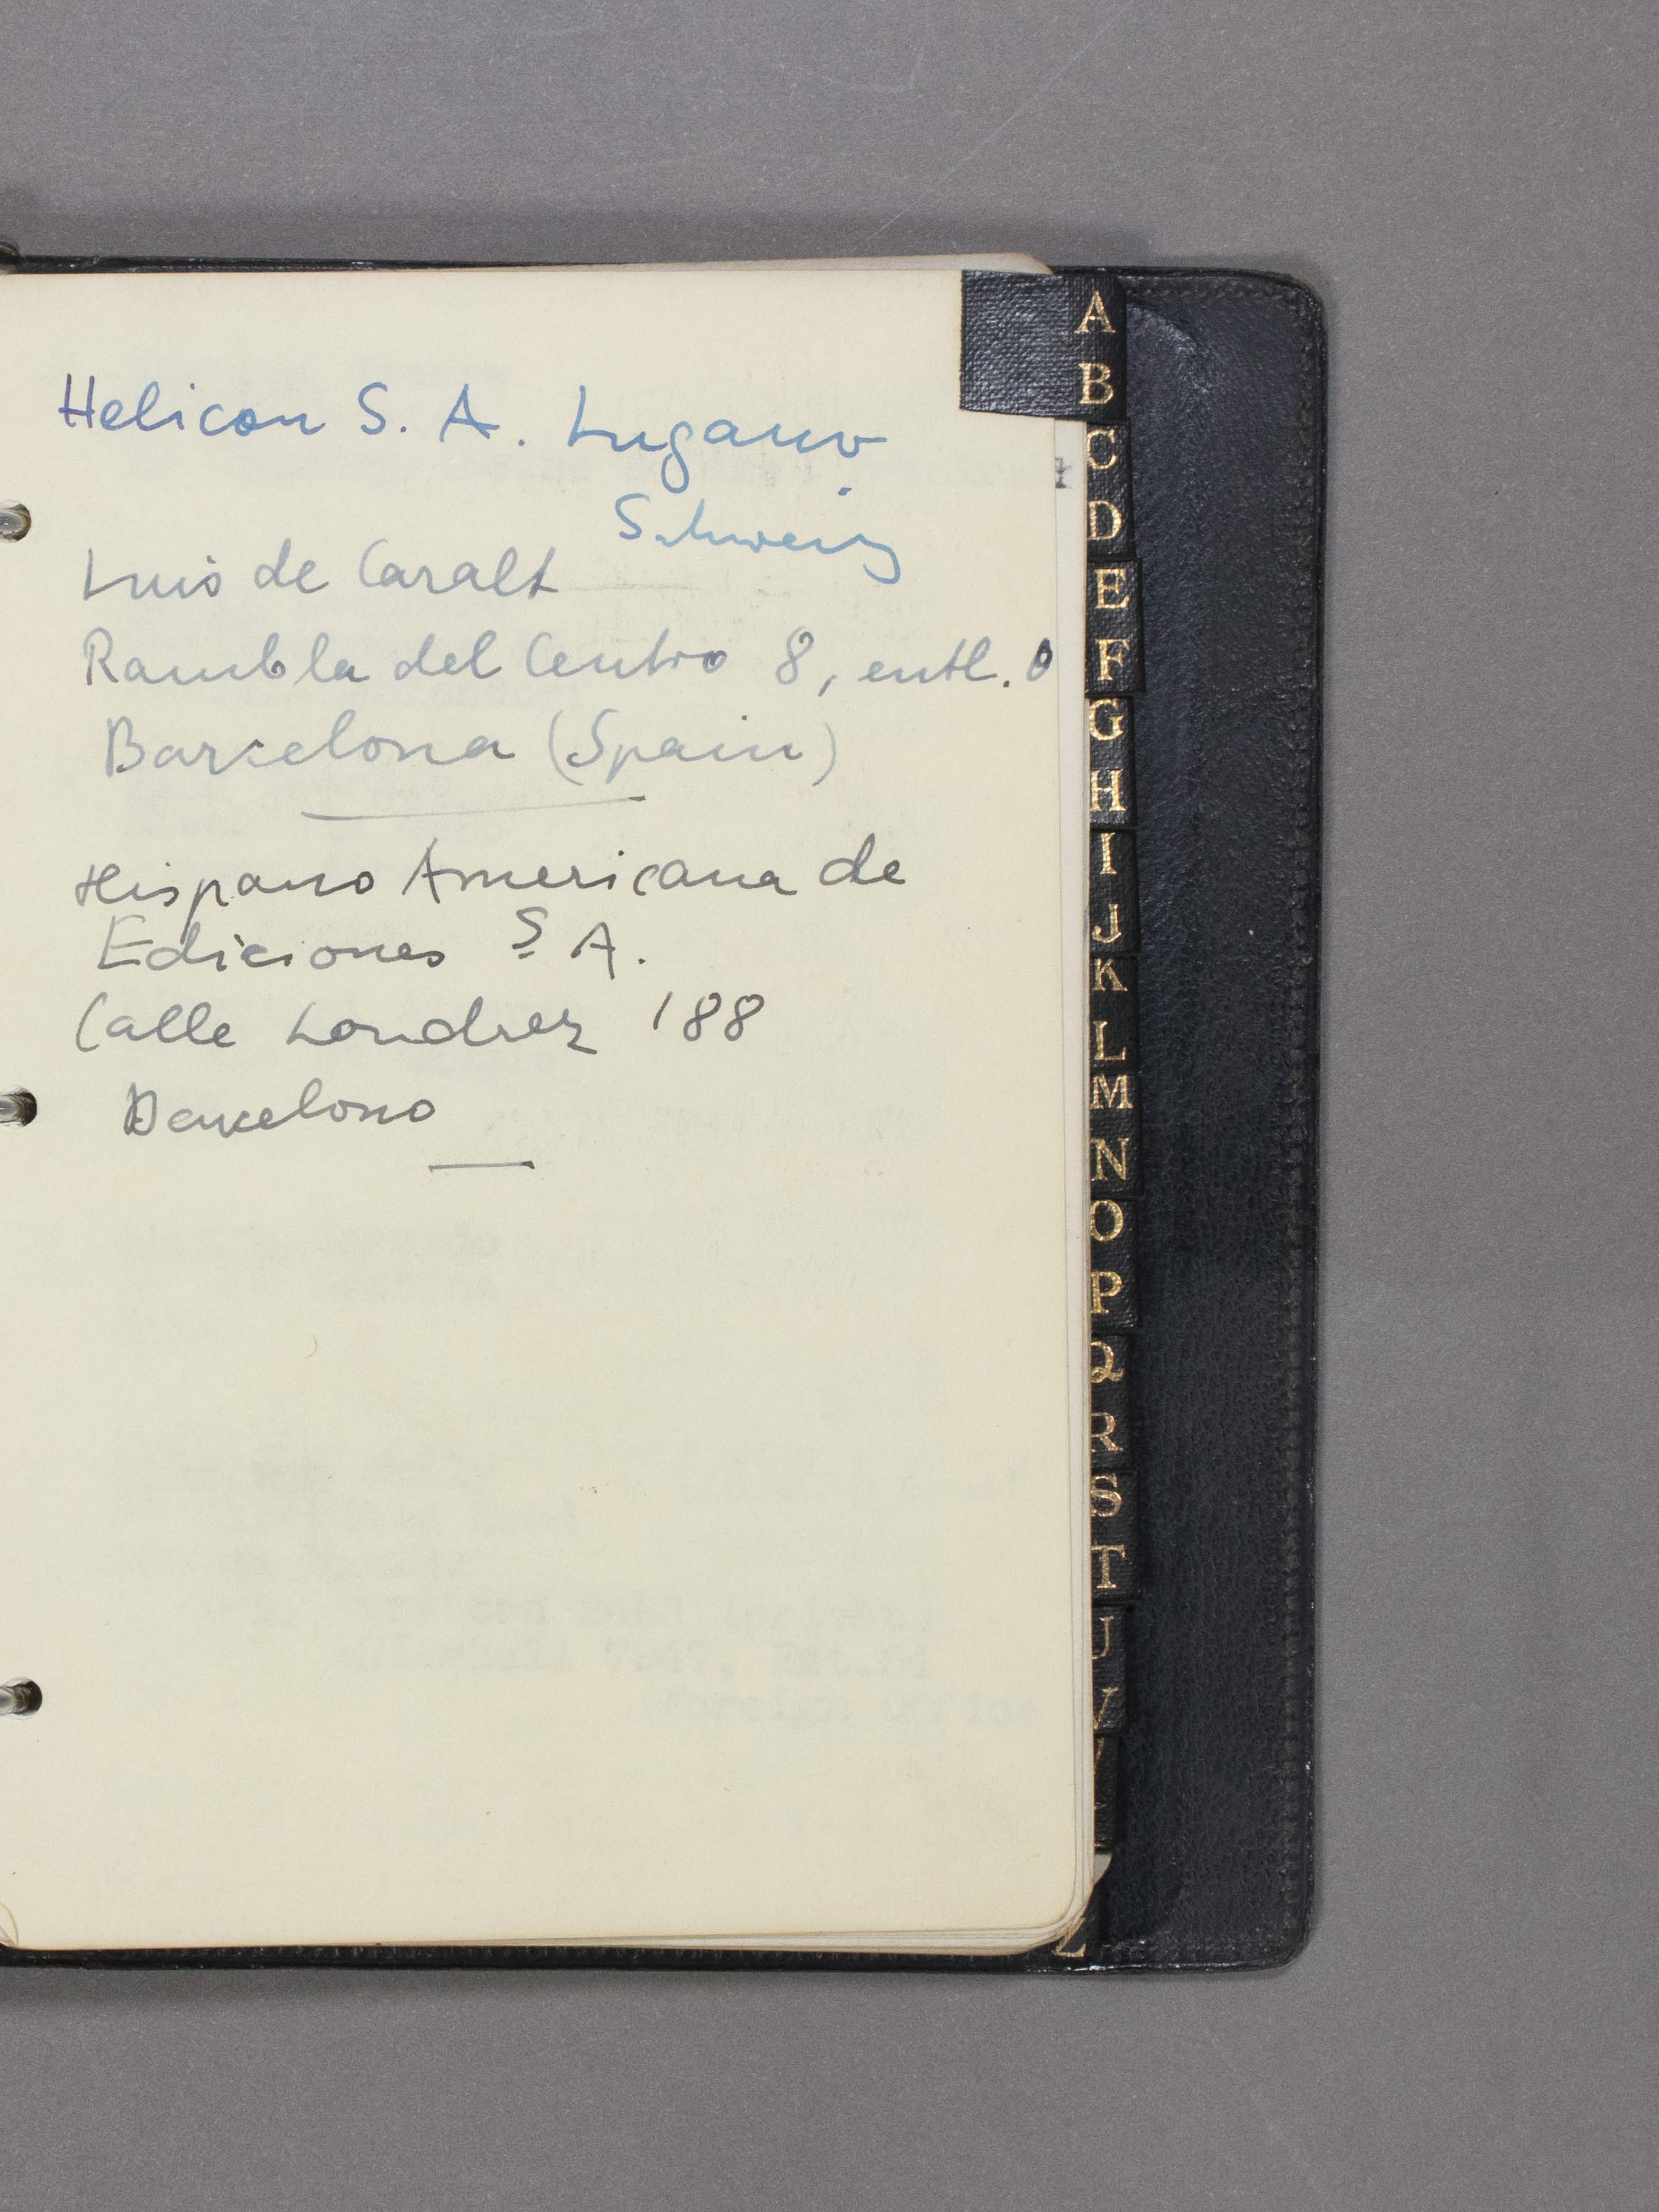 Helicon S. A. Lugano
Schweiz
Luis de Caralt
Rambla del Centro 8, entl.
Barcelona (Spain)
Hispano Americana de
Ediciones S. A.
Calle Londrez 188
Barcelona
A
B
C
D
E
F
G
H
I
J
K
L
M
N
O
P
Q
R
S
T
U
V
Z